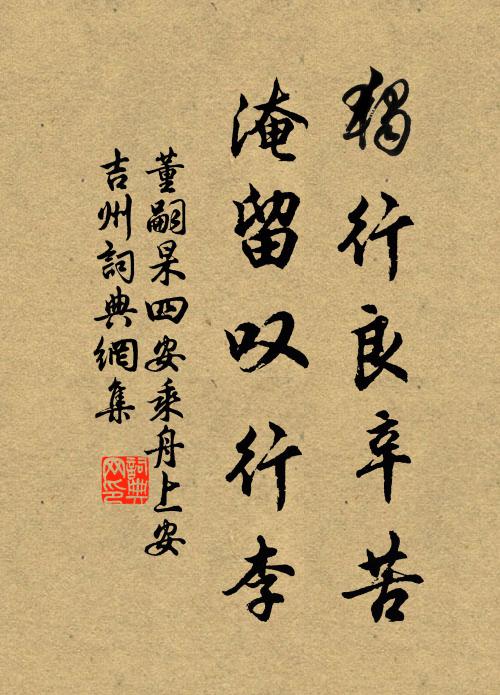 獨行良辛苦
淹留叹行李
董嗣杲四安乘舟上安
吉州詞典網集
詞典
网印